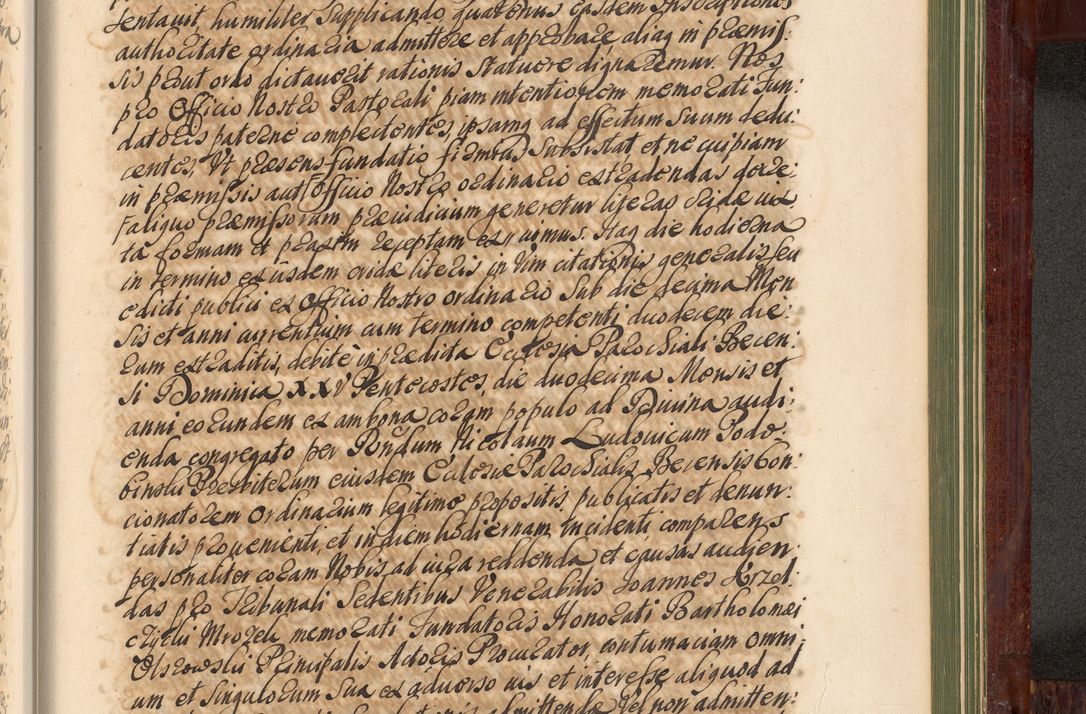 sentavit, humiliter supplicando, quatenus eassem Inscriptiones
authoritate ordinaria admittere et approbare aliaq in præmis:
sis prout ordo dictaverit rationis statuere dignaremur. Nos
pro Officio Nostro Pastorali piam intentionem memorati Fun:
datoris paterne complectentes, ipsamq ad effectum suum dedu:
centes, Ut præsens fundatio firmius subsistat et ne cuipiam
in præmissis aut Officio Nostro ordinario extradendas decre:
aliquo præmissorum præiudicium generetur literas cridæ iux
ta formam et praxim receptam ex, uimus. Itaq die hodierna
in termino ex iisdem cridæ literis in vim citationis generalis seu
edicti publici ex Officio Nostro ordinario sub die decima Men
sis et anni currentium cum termino competenti duodecem die:
rum extraditis, debite in prædicta Ecclesia Parochiali Becen:
si Dominica XXV Pentecostes, die duodecima Mensis et
anni eorundem ex ambona coram populo ad Divina audi:
enda congregato per Rndum Nicolaum Ludovicum Podo:
binski Presbiterum eiusdem Ecclesiæ Parochialis Becensis Con:
cionatorem Ordinarium legitime propositis, publicatis et denun:
tiatis provenienti, et in diem hodiernam incidenti comparens
personaliter coram Nobis ad iura reddenda et causas audien:
das pro Tribunali Sedentibus Venerabilis Joannes Krzel:
czycki Mrozek memorati Fundatoris Honorati Bartholomæi
Olszowski Principalis Actoris Procurator, contumaciam omni
um et singulorum sua ex adverso ius et interesse aliquod ad
admittenda vel non admitten: